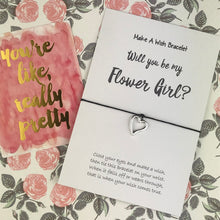 You're
like,
really
pretty
Make A Wish Bracelet
Will you be my
Flower Girl?
Close your eyes and make a wish,
then tie this bracelet on your wrist,
when it falls off or wears through,
that is when your wish comes true.